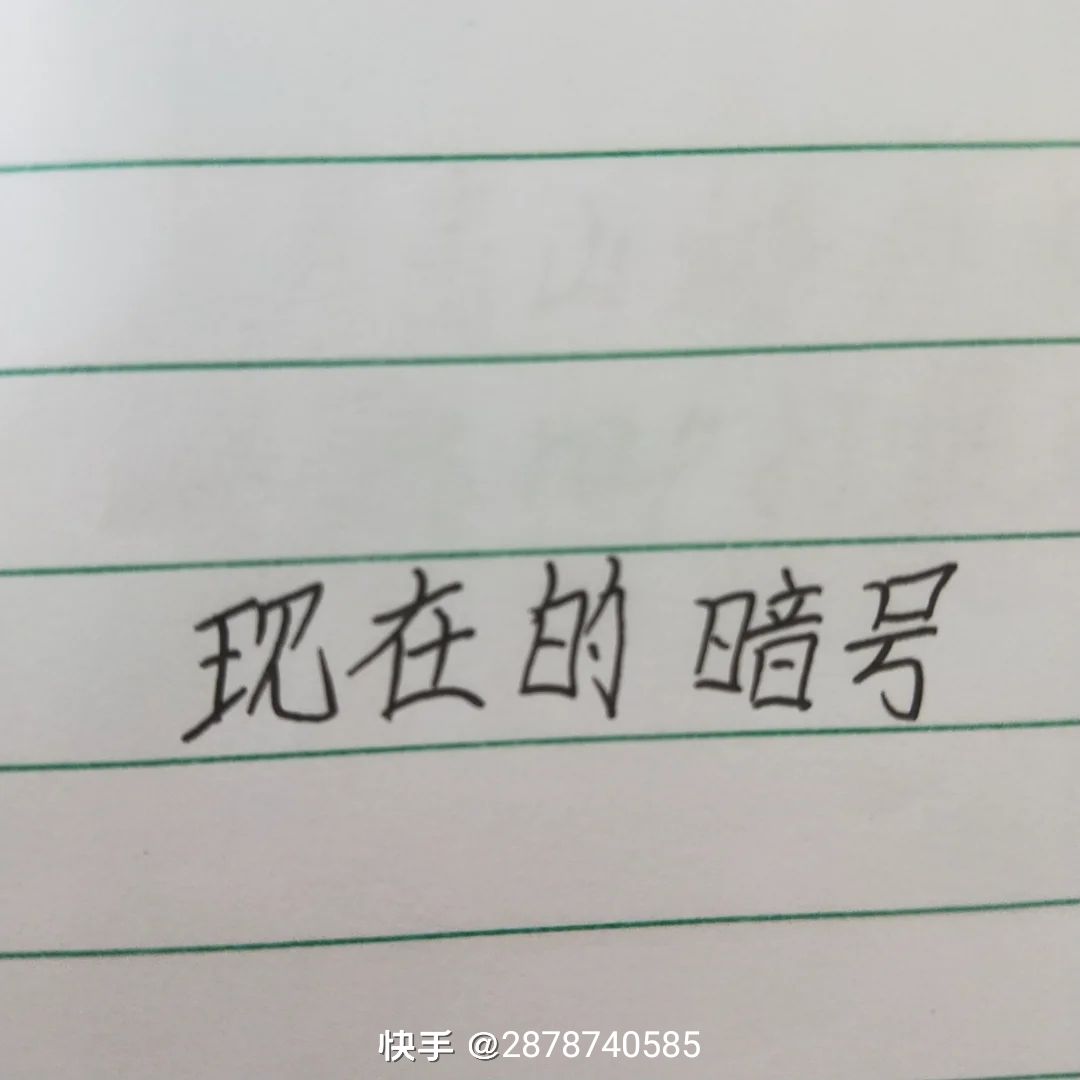 现在的暗号
快手 @2878740585